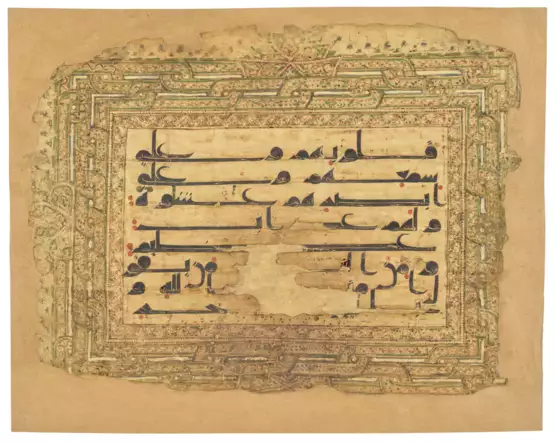 قلوبهم و على
سمعهم و على
ابصرهم غشوة
ولهم عذاب
عظيم
ومن النا من يقو
ل امنا بالله و